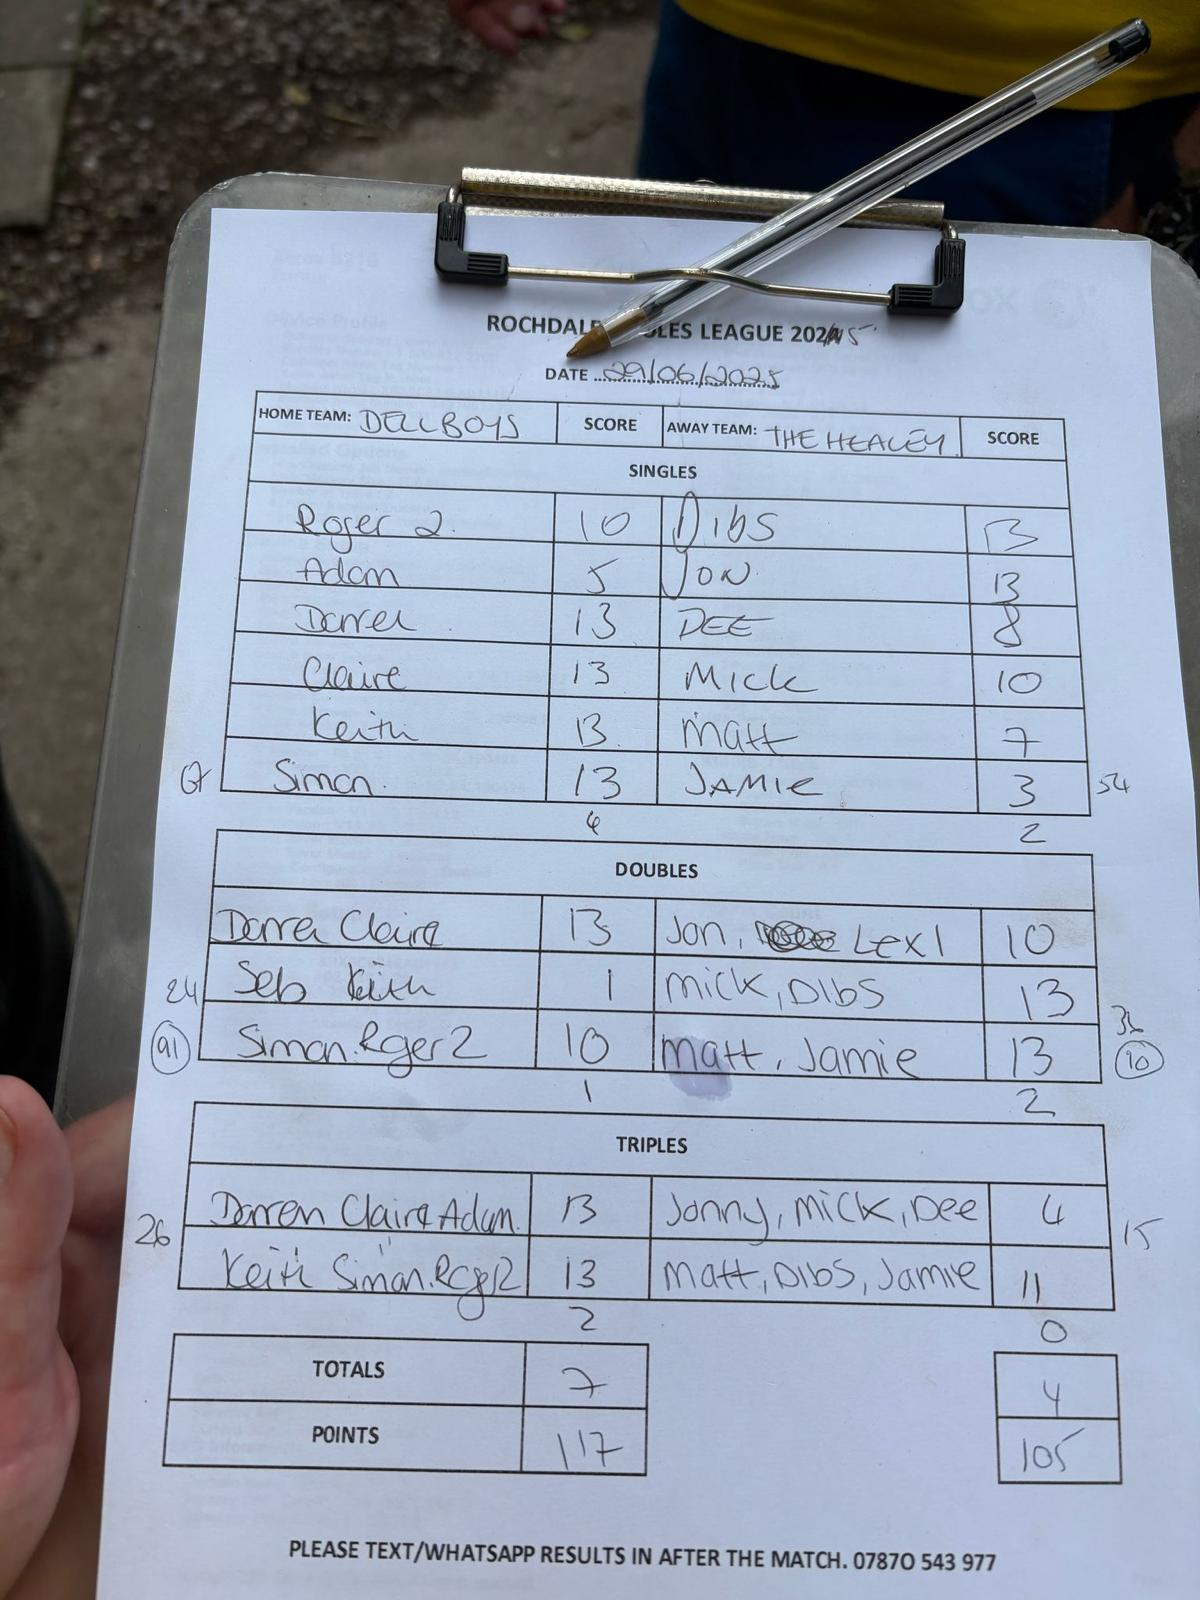 ROCHDALE BOULES LEAGUE 2025
DATE 29/06/2025
HOME TEAM: DELLBOYS SCORE AWAY TEAM: THE HEALEY SCORE
SINGLES
Roger 2. 10 DIBS 13
Adam 5 JON 13
Darren 13 DEE 8
Claire 13 MICK 10
Keith 13 Matt 7
67 Simon. 13 JAMIE 3 54
4 2
DOUBLES
Darren Claire 13 Jon, LEXI 10
24 Seb Keith 1 MICK, DIBS 13
91 Simon. Roger 2 10 Matt, Jamie 13 90
1 2
TRIPLES
Darren Claire Adam. 13 Jonny, MICK, Dee 4
26 15
Keith Simon. Roger 2 13 Matt, DIBS, Jamie 11
2 0
TOTALS 7 4
POINTS 117 105
PLEASE TEXT/WHATSAPP RESULTS IN AFTER THE MATCH. 07870 543 977